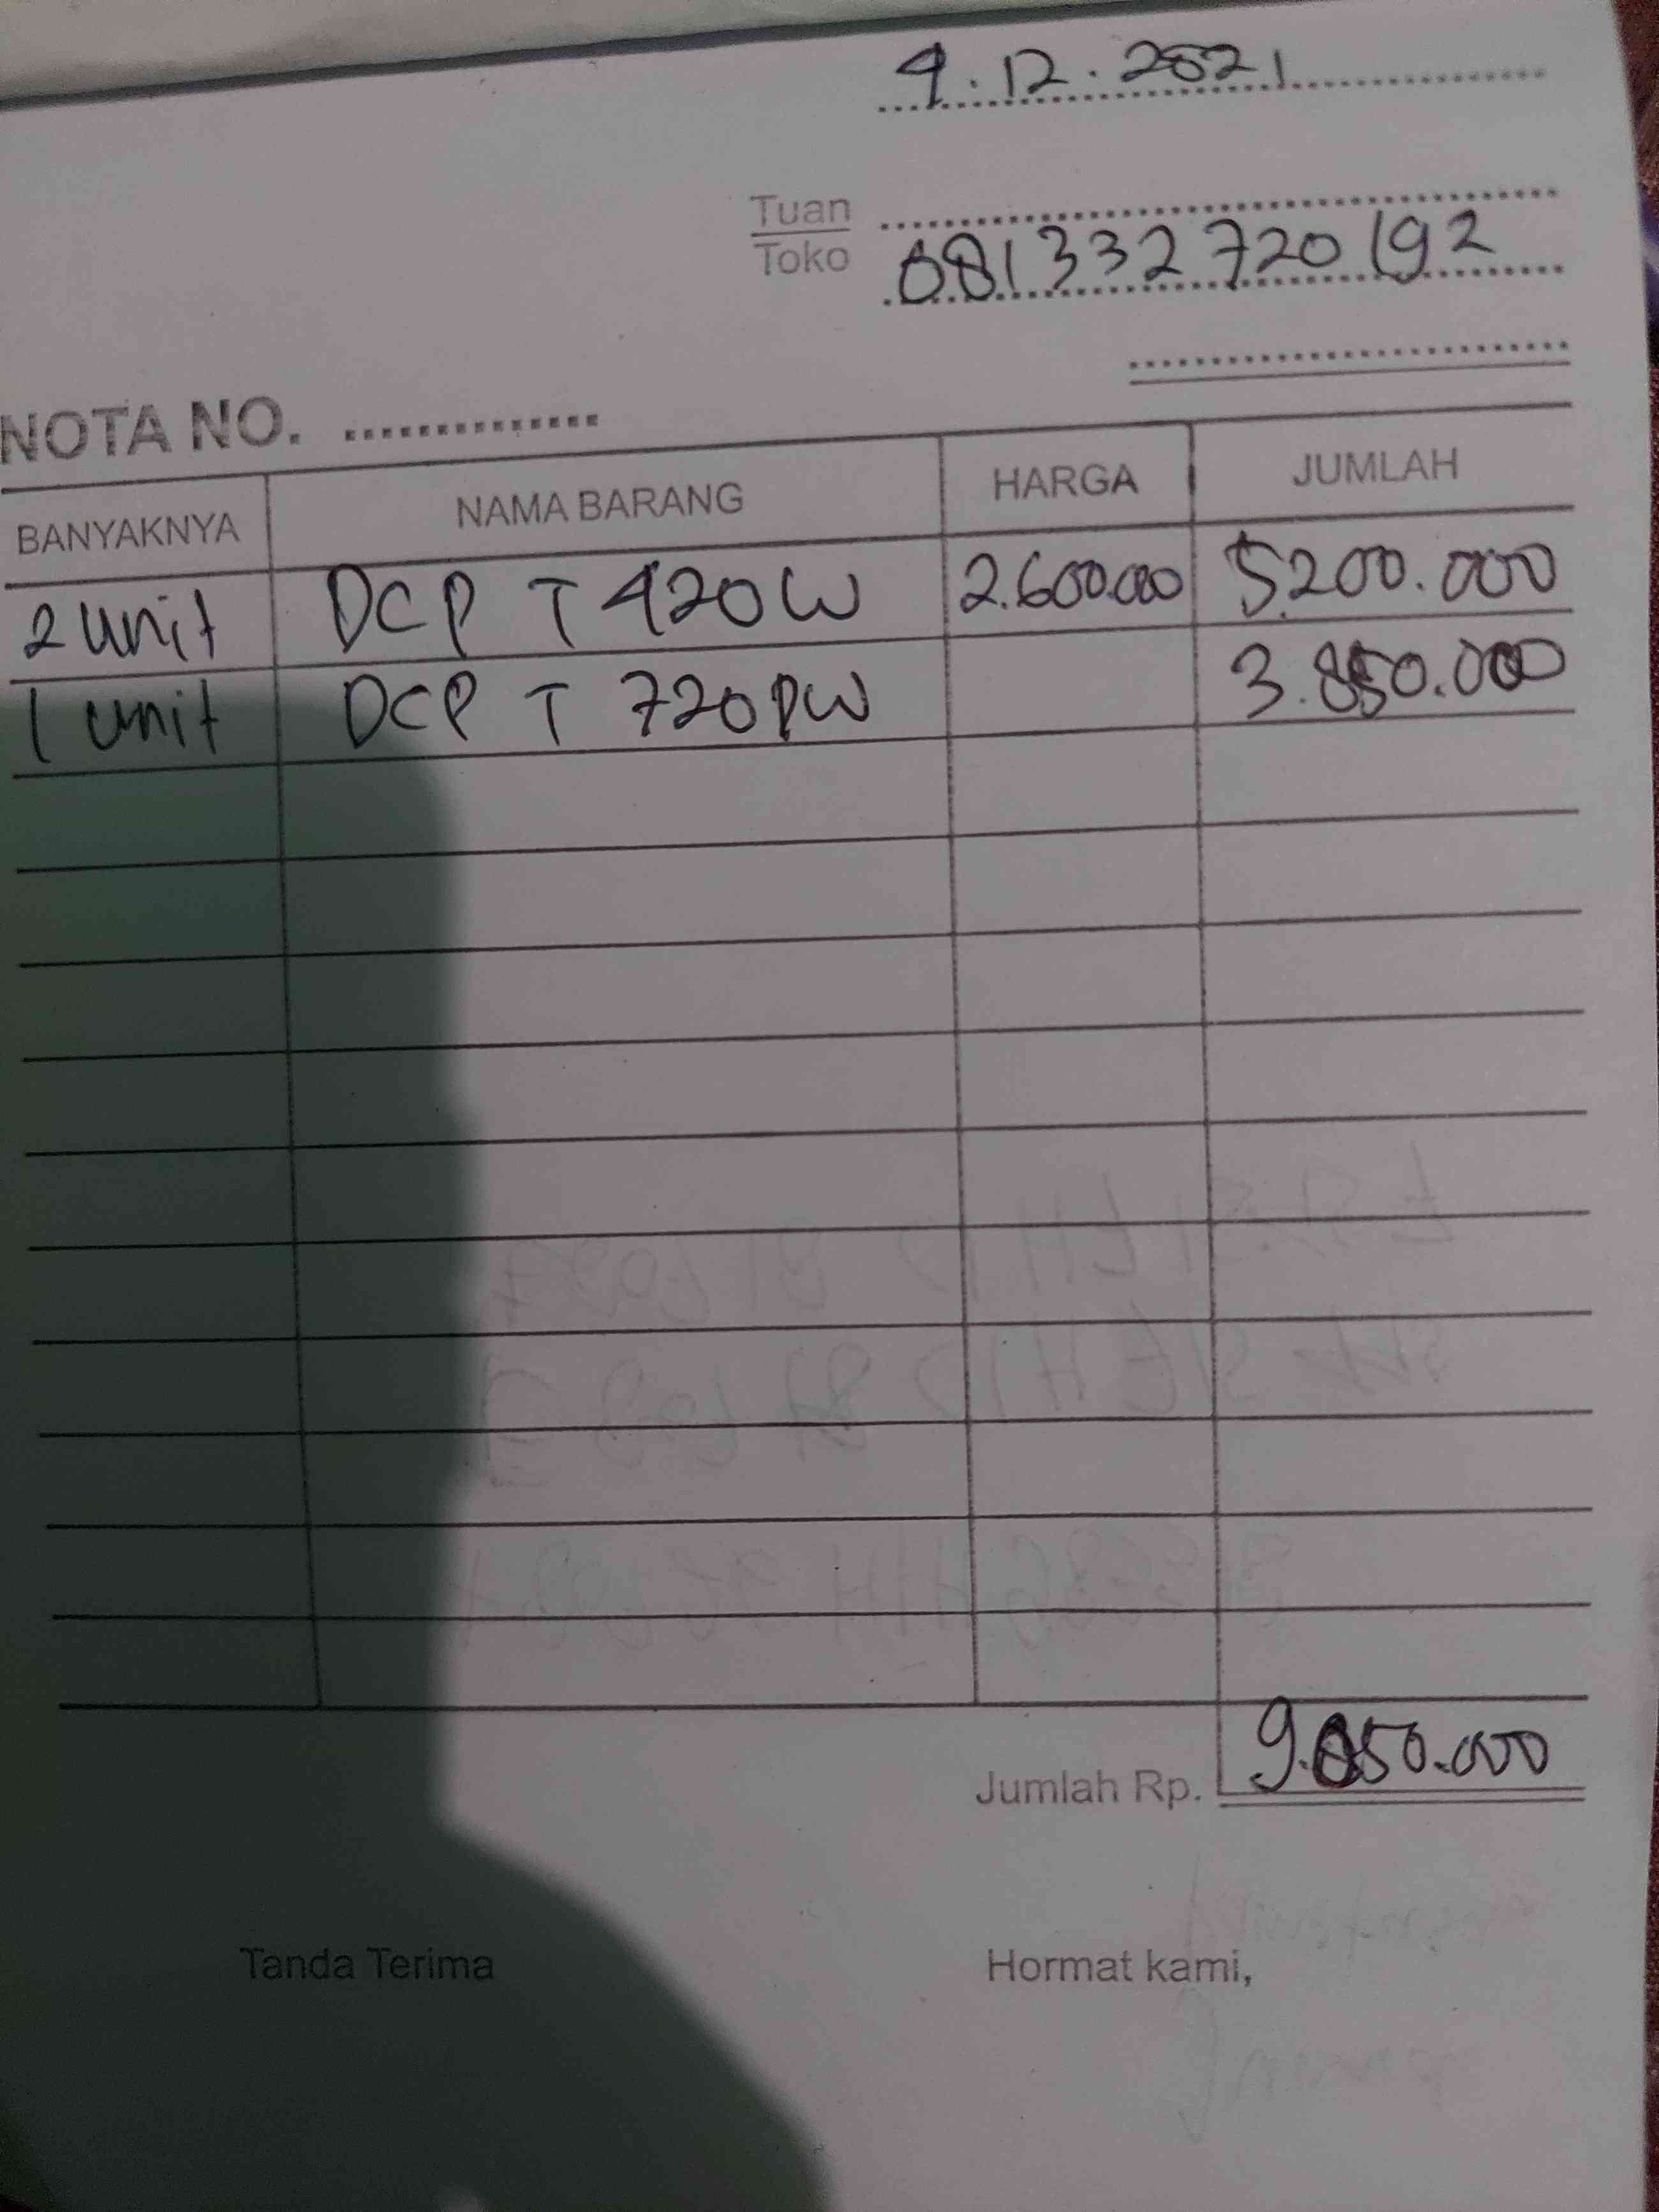 4.12.2021
Tuan
Toko
081332720192
NOTA NO. ..............
BANYAKNYA NAMA BARANG HARGA JUMLAH
2 unit DCP T 420W 2.600.000 5.200.000
1 unit DCP T 720PW 3.850.000
Jumlah Rp. 9.050.000
Tanda Terima Hormat kami,